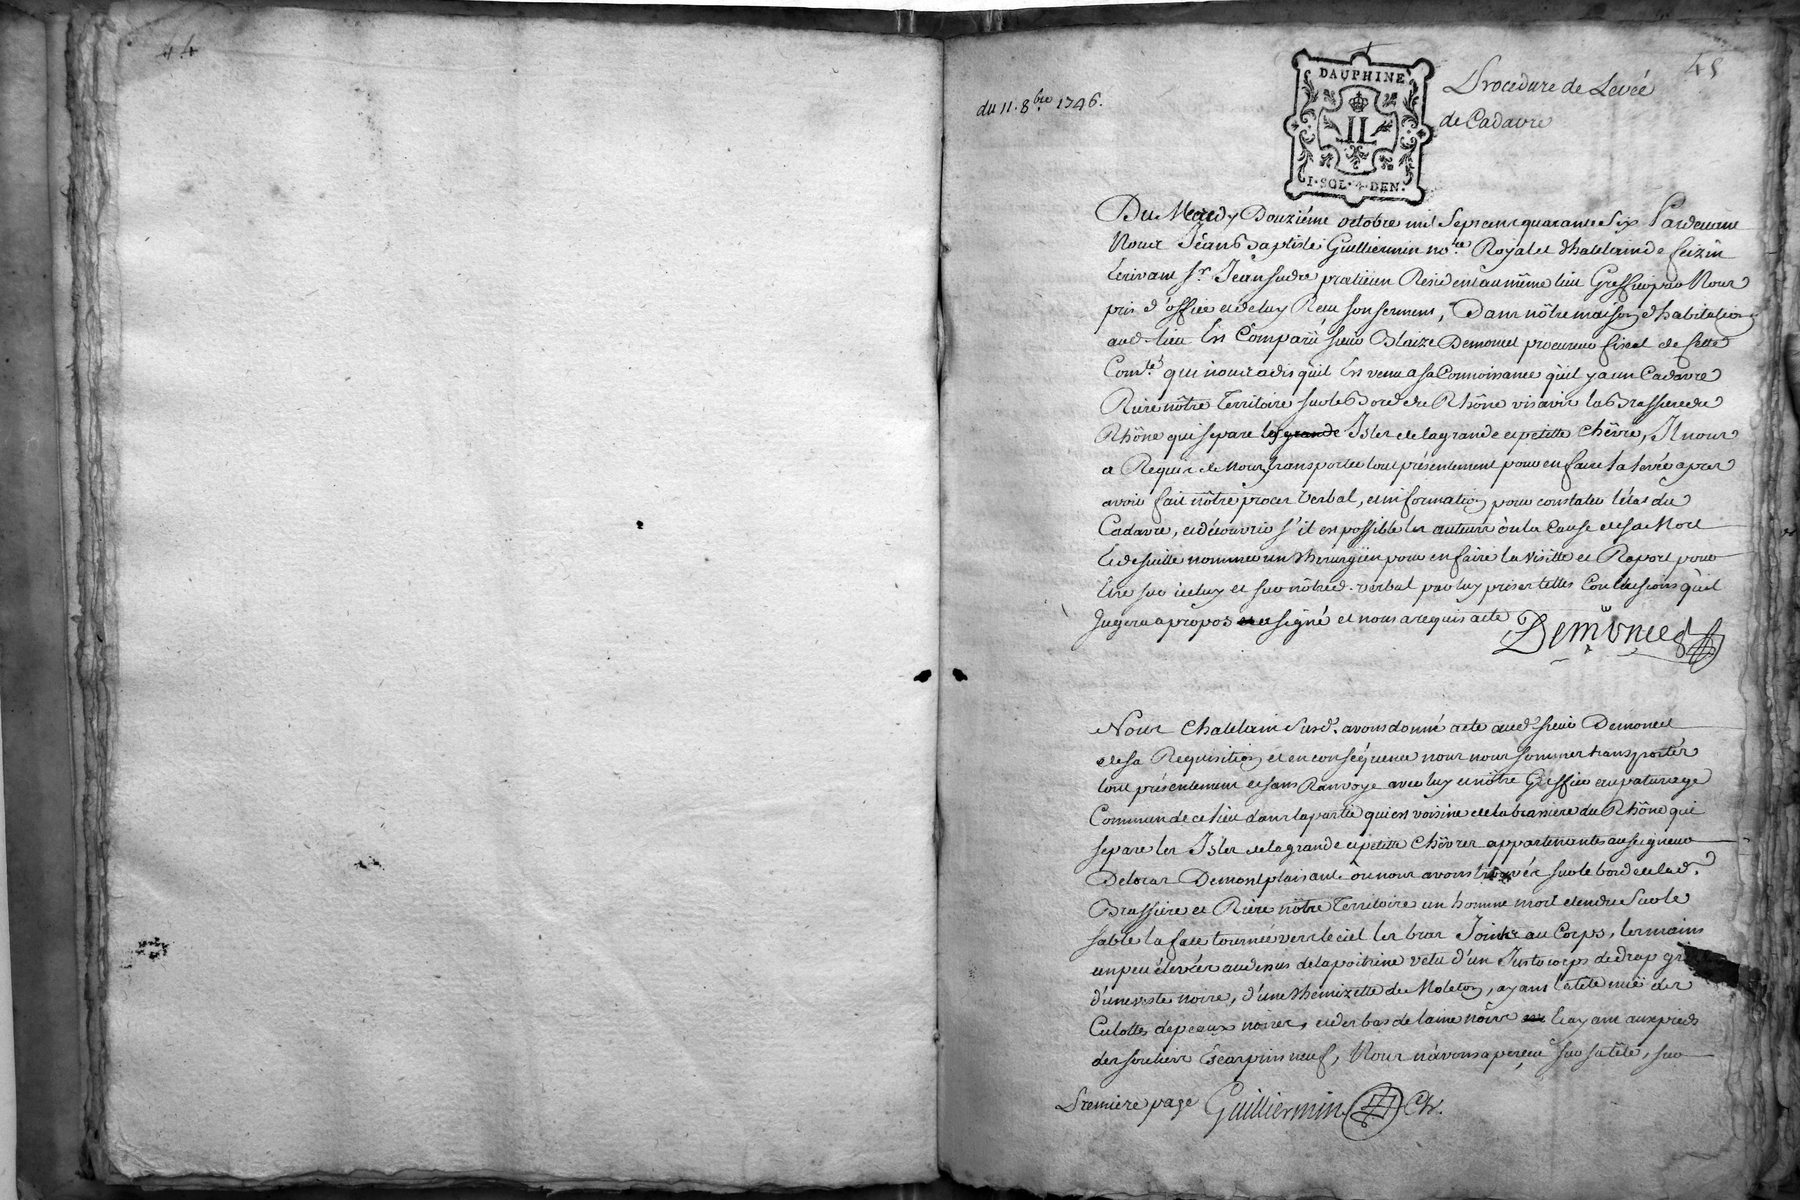 44
45
du 11. 8bre 1746.
DAUPHINE
IL
I·SOL·DEN.
Procedure de Levée
de Cadavre
Du Mecredy Douziéme octobre mil Septcent quarante Six Pardevant
Nous Jean Baptiste Guilliermin nore. Royal et Chatelain de feizin
Ecrivant sr. Jean sudre praticien Resident au même lieu Greffier par Nous
pris d'office et de luy Reçu son serment, Dans nôtre maison d'habitation
aud. lieu Est Comparû sieur Blaize Demoncel procureur fiscal de Cette
Comté. qui nous a dis qu'il Est venu a sa Connoissance qu'il y a un Cadavre
Riere nôtre Territoire sur le Bord du Rhône vis avis la Brassiere du
Rhône qui separe les grande Isles de la grande et petitte Chêvre, Il nous
a Requis de Nous transporter tout présentement pour en faire la levée apres
avoir fait nôtre proces Verbal, et information pour constater l'état du
Cadavre, et découvrir s'il est possible les auteurs où la Cause de sa Mort
Et de suitte nommer un Chirurgien pour en faire la Visitte et Raport pour
Etre sur iceluy et sur nôtred. verbal par luy prises telles Conclusions qu'il
Jugera a propos et a signé et nous a requis acte Demoncel
Nous Chatelain Susd. avons donné acte aud. sieur Demoncel
de sa Requisition et en conséquence nous nous sommes transportés
tout présentement et sans Ranvoye avec luy et nôtre Greffier au paturage
Commun de ce lieu dans la partie qui est voisine de la brassiere du Rhône qui
separe les Isles de la grande et petitte Chêvres appartenantes au seigneur
Delocar Demontplaisant où nous avons trouvés sur le bord de lad.
Brassiere et Riere nôtre Territoire un homme mort etendu Sur le
sable la face tournée vers le ciel les bras Joints au Corps, les mains
un peu élevées au dessus de la poitrine vetu d'un Justocorps de drap
d'une veste noire, d'une Chemizette de Moleton, ayant la tete nuë des
Culottes de peaux noires, et des bas de laine noire et ayant aux pieds
des souliers Escarpins neuf, Nous n'avons aperçeu sur sa tête, sur
Premiere page Guilliermin Ch.